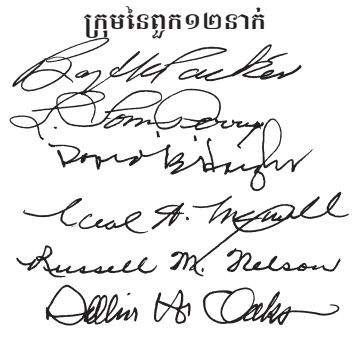 ក្រុមនៃពួក១២នាក់
Boyd K Packer
L. Tom Perry
David B. Haight
Neal A. Maxwell
Russell M. Nelson
Dallin H. Oaks